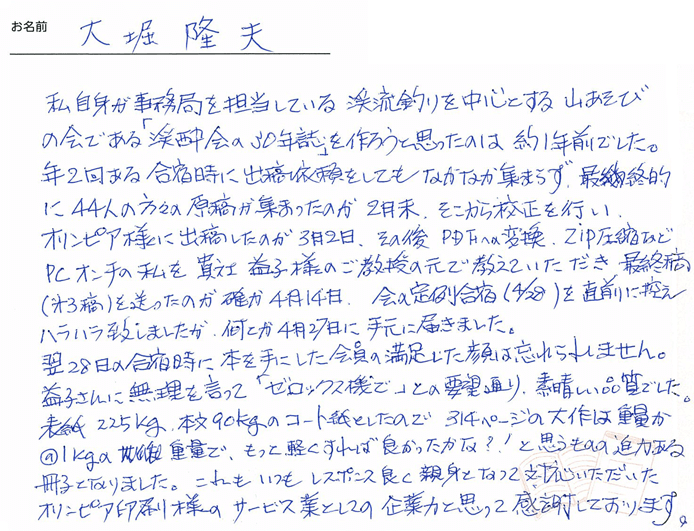 お名前 大堀 隆夫
私自身が事務局を担当している 渓流釣りを中心とする 山あそび
の会である「渓酔会の30年誌」を作ろうと思ったのは 約1年前でした。
年2回ある 合宿時に 出稿依頼をしても なかなか集まらず、最終的
に 44人の方々の 原稿が集まったのが 2月末、そこから校正を行い、
オリンピア様に 出稿したのが 3月2日、その後 PDFへの変換、ZIP圧縮など
PCオンチの私を 貴社 益子様のご教授の元で教えていただき 最終稿
(第3稿)を送ったのが 確か4月14日、会の定例合宿(4/28)を直前に控え
ハラハラ致しましたが、何とか4月27日に 手元に届きました。
翌28日の合宿時に 本を手にした会員の満足した顔は忘れられません。
益子さんに無理を言って「ゼロックス機で」との要望通り、素晴しい品質でした。
表紙 225kg、本文90kgのコート紙としたので 314ページの大作は重量が
@1kgの 重量で、もっと軽くすれば良かったかな?!と思うものの迫力ある
冊子となりました。これも いつも レスポンス良く 親身となって 対応いただいた
オリンピア印刷様の サービス業としての 企業力と思って 感謝しております。